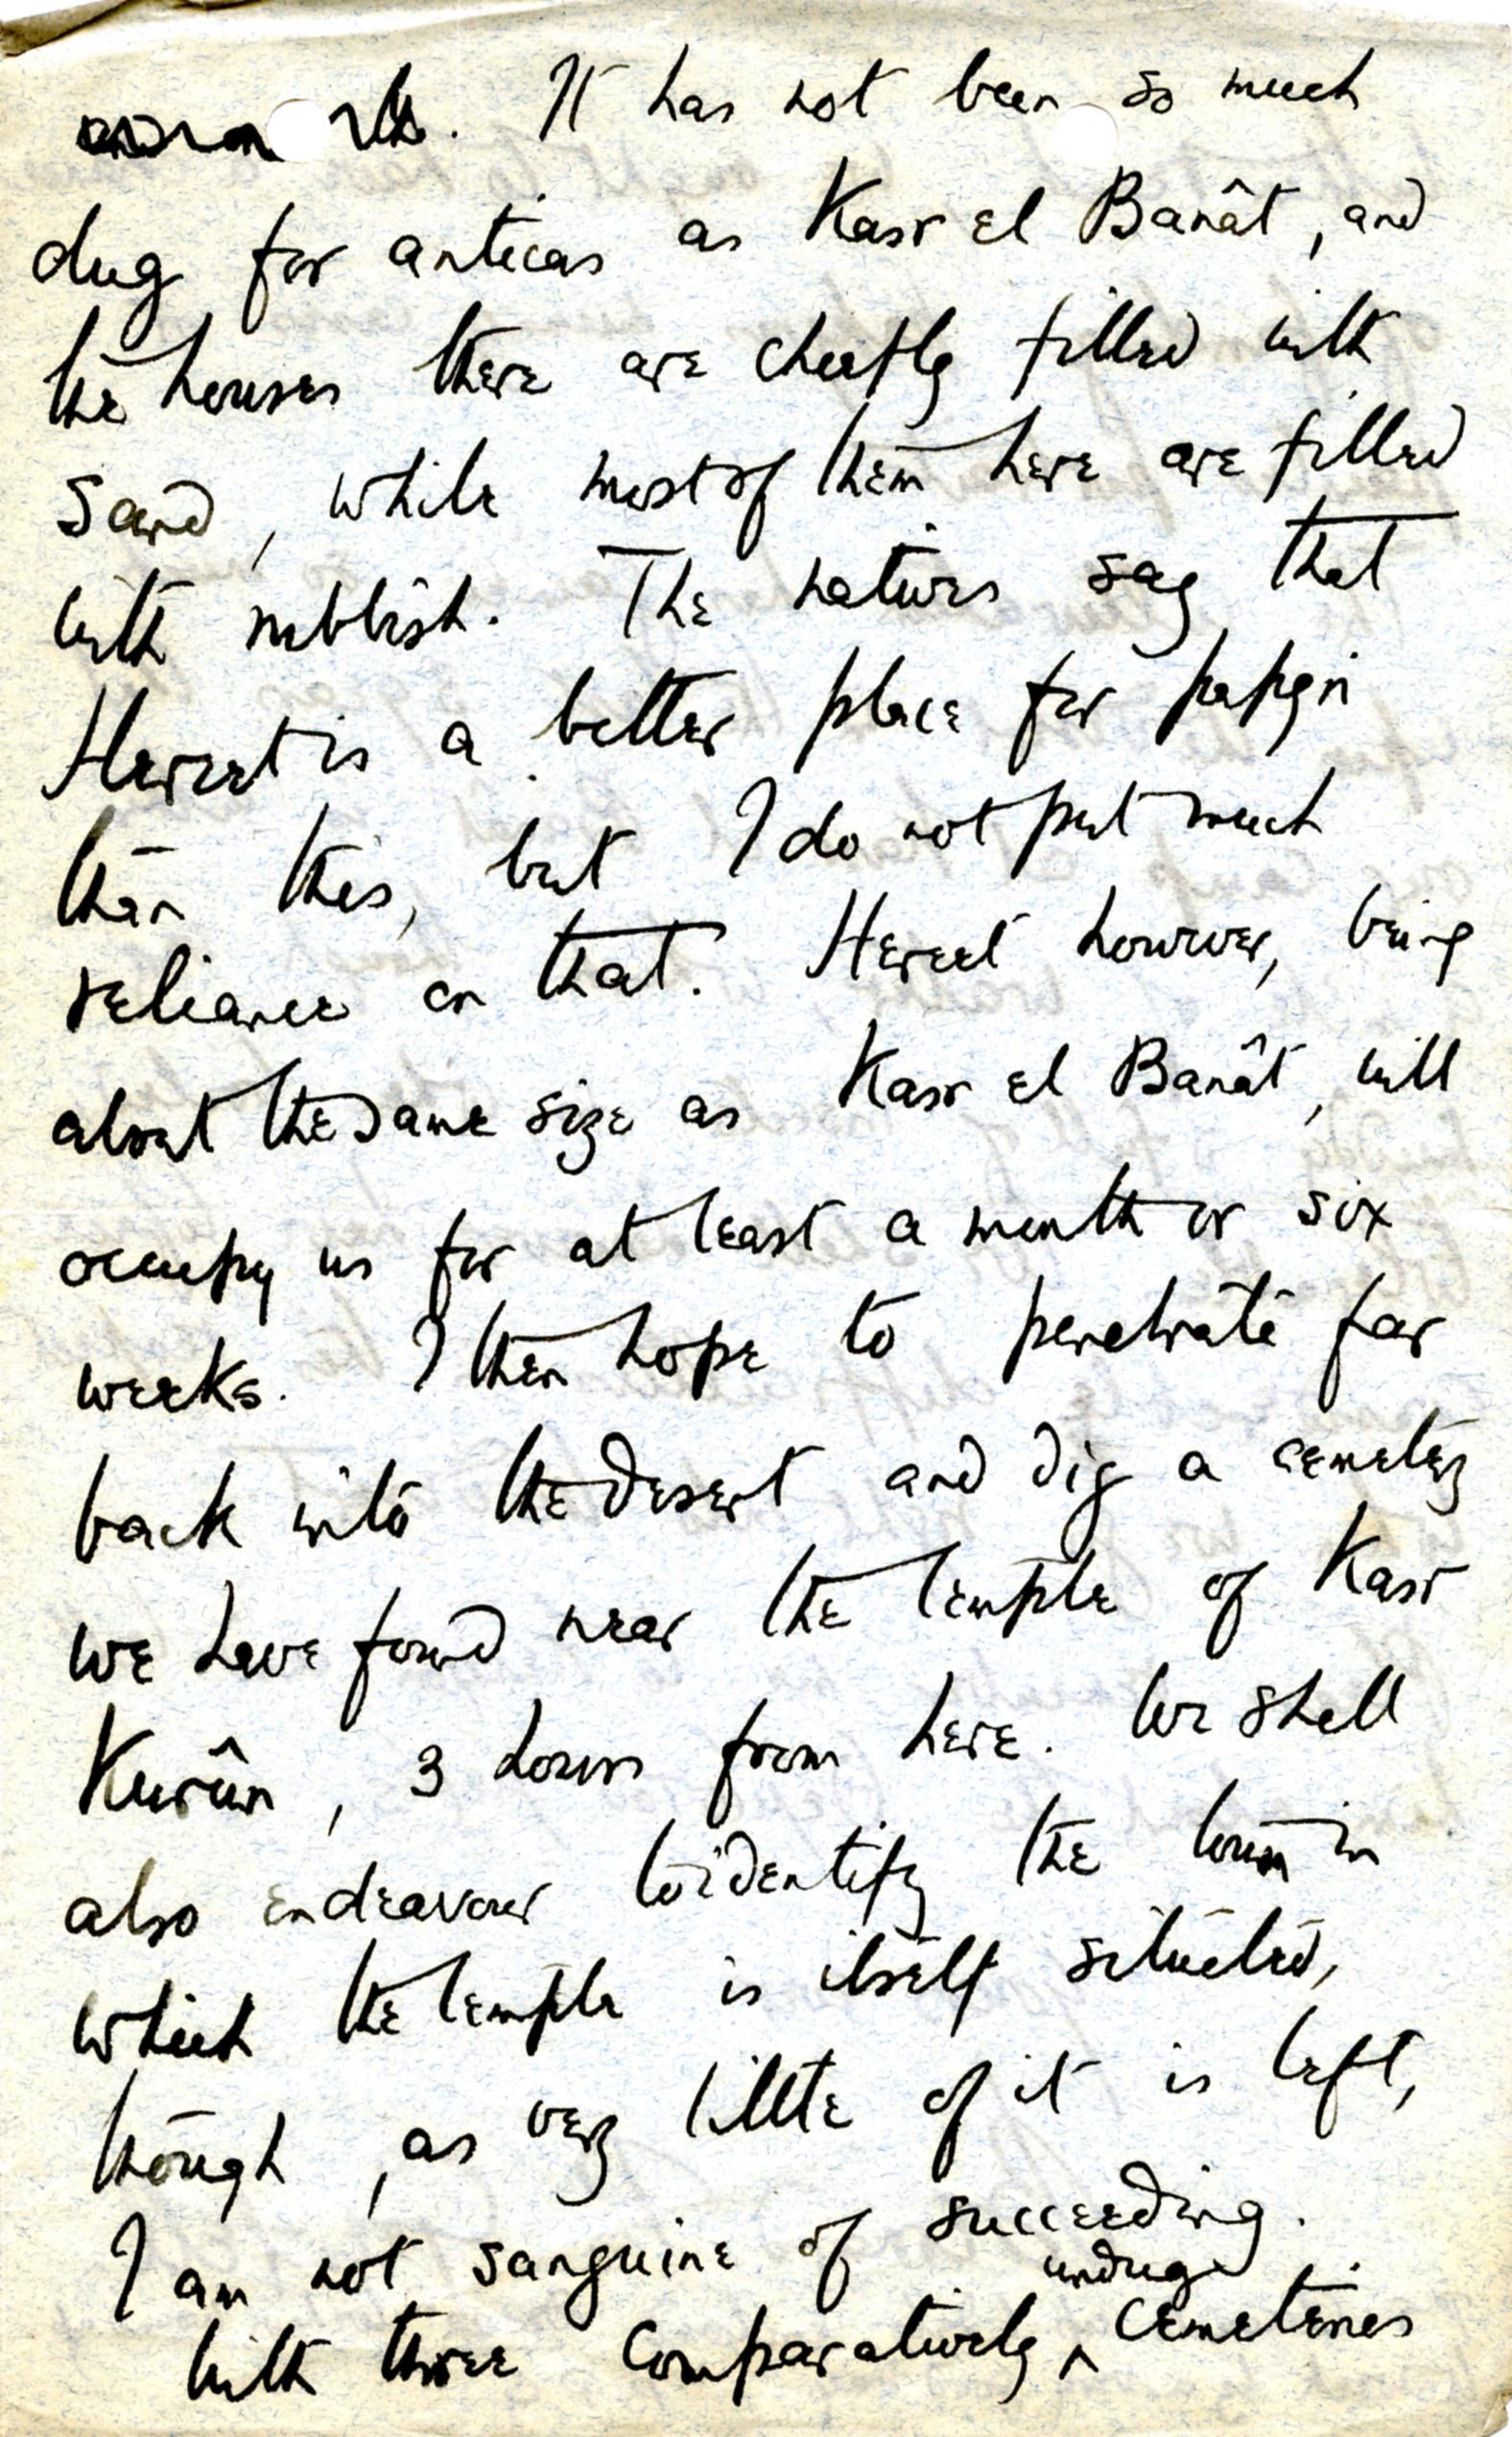 It has not been so much
dug for anticas as Kasr el Banât, and
the houses there are chiefly filled with
sand, while most of them here are filled
with rubbish. The natives say that
Hereet is a better place for papyri
than this, but I do not put much
reliance on that. Hereet however, being
about the same size as Kasr el Banât, will
occupy us for at least a month or six
weeks. I then hope to penetrate far
back into the desert and dig a cemetery
we have found near the temple of Kasr
Kurûn, 3 hours from here. We shall
also endeavour to identify the town in
which the temple is itself situated,
though, as very little of it is left,
I am not sanguine of succeeding.
undug
With three comparatively ^ cemeteries